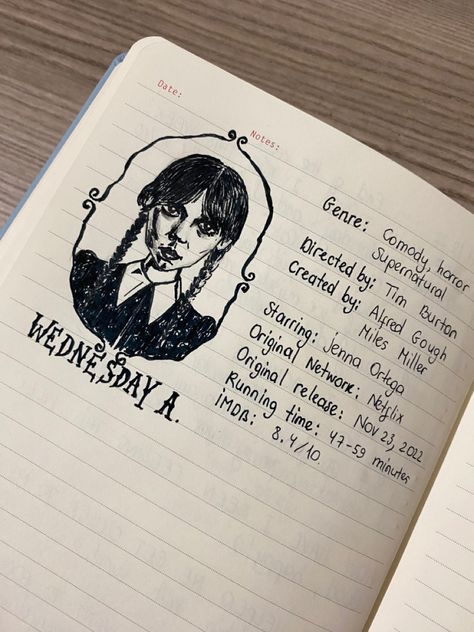 Date:
Notes:
WEDNESDAY A.
Genre: Comody, horror
Supernatural
Directed by: Tim Burton
Created by: Alfred Gough
Miles Miller
Starring: Jenna Ortga
Original Network: Netflix
Original release: Nov 23, 2022
Running time: 47-59 minutes
iMDB: 8.4/10.